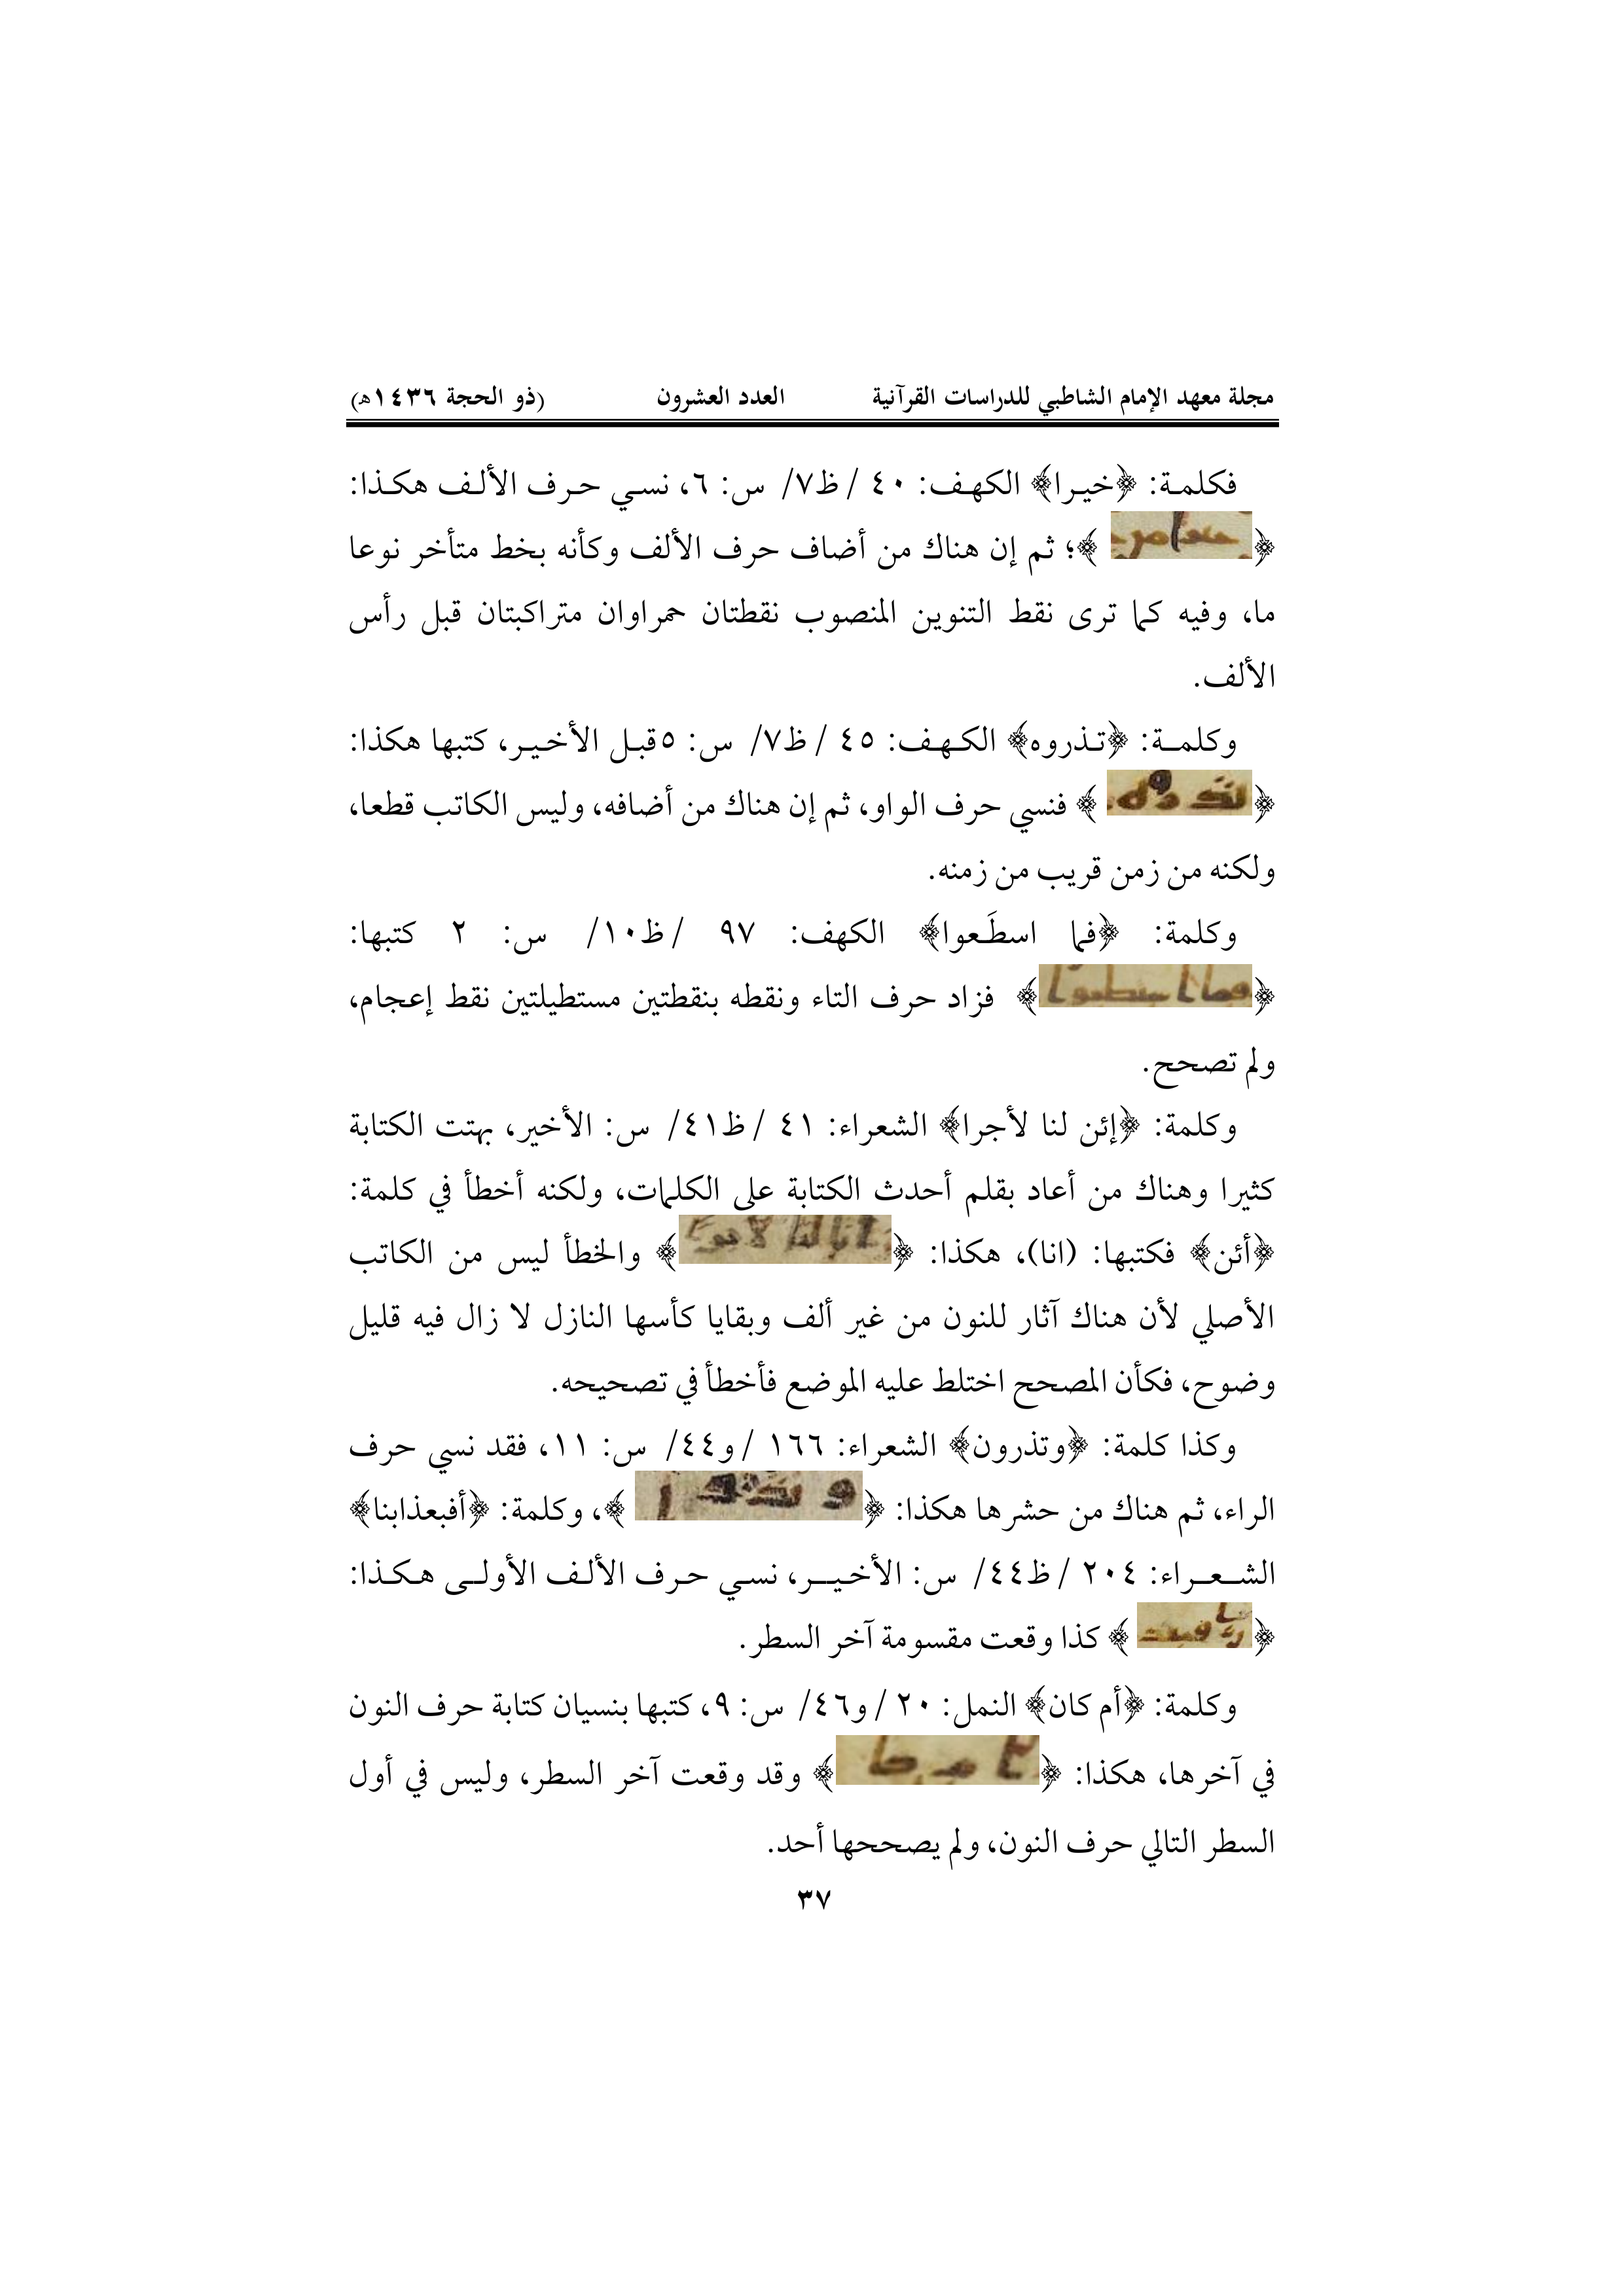 مجلة معهد الإمام الشاطبي للدراسات القرآنية العدد العشرون (ذو الحجة ١٤٣٦هـ)
فكلمة: ﴿خيرا﴾ الكهف: ٤٠ / ظ٧/ س: ٦، نسي حرف الألف هكذا:
﴿ ﴾؛ ثم إن هناك من أضاف حرف الألف وكأنه بخط متأخر نوعا
ما، وفيه كما ترى نقط التنوين المنصوب نقطتان حمراوان متراكبتان قبل رأس
الألف.
وكلمة: ﴿تذروه﴾ الكهف: ٤٥ / ظ٧/ س: ٥قبل الأخير، كتبها هكذا:
﴿ ﴾ فنسي حرف الواو، ثم إن هناك من أضافه، وليس الكاتب قطعا،
ولكنه من زمن قريب من زمنه.
وكلمة: ﴿فما اسطَعوا﴾ الكهف: ٩٧ / ظ١٠/ س: ٢ كتبها:
﴿ ﴾ فزاد حرف التاء ونقطه بنقطتين مستطيلتين نقط إعجام،
ولم تصحح.
وكلمة: ﴿إئن لنا لأجرا﴾ الشعراء: ٤١ / ظ٤١/ س: الأخير، بهتت الكتابة
كثيرا وهناك من أعاد بقلم أحدث الكتابة على الكلمات، ولكنه أخطأ في كلمة:
﴿أئن﴾ فكتبها: (انا)، هكذا: ﴿ ﴾ والخطأ ليس من الكاتب
الأصلي لأن هناك آثار للنون من غير ألف وبقايا كأسها النازل لا زال فيه قليل
وضوح، فكأن المصحح اختلط عليه الموضع فأخطأ في تصحيحه.
وكذا كلمة: ﴿وتذرون﴾ الشعراء: ١٦٦ / و٤٤/ س: ١١، فقد نسي حرف
الراء، ثم هناك من حشرها هكذا: ﴿ ﴾، وكلمة: ﴿أفبعذابنا﴾
الشعراء: ٢٠٤ / ظ٤٤/ س: الأخير، نسي حرف الألف الأولى هكذا:
﴿ ﴾ كذا وقعت مقسومة آخر السطر.
وكلمة: ﴿أم كان﴾ النمل: ٢٠ / و٤٦/ س: ٩، كتبها بنسيان كتابة حرف النون
في آخرها، هكذا: ﴿ ﴾ وقد وقعت آخر السطر، وليس في أول
السطر التالي حرف النون، ولم يصححها أحد.
٣٧